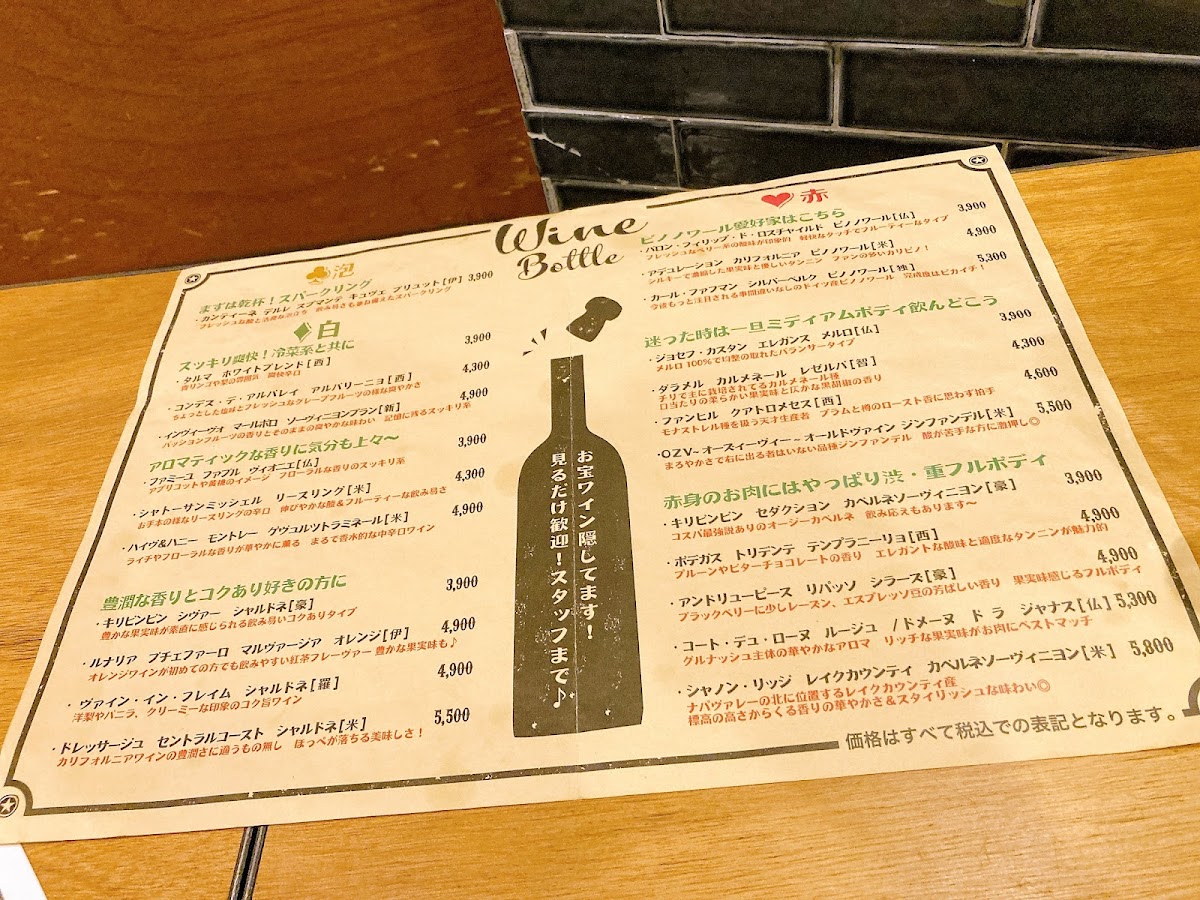 Wine
Bottle
泡
まずは乾杯！スパークリング
・カンティーネ テルレ スプマンテ キュヴェ ブリュット[伊] 3,900
フレッシュな酸と活発な泡立ち 飲み易さも兼ね備えたスパークリング
白
スッキリ爽快！冷菜系と共に
・タルマ ホワイトブレンド[西] 3,900
青リンゴや梨の雰囲気 爽快辛口
・コンデス・デ・アルバレイ アルバリーニョ[西] 4,300
ちょっとした塩味とフレッシュなグレープフルーツの様な爽やかさ
・インヴィーヴォ マールボロ ソーヴィニヨンブラン[新] 4,900
パッションフルーツの香りとそのままの爽やかな味わい 記憶に残るスッキリ系
アロマティックな香りに気分も上々～
・ファミーユ ファブル ヴィオニエ[仏] 3,900
アプリコットや黄桃のイメージ フローラルな香りのスッキリ系
・シャトーサンミッシェル リースリング[米] 4,300
お手本の様なリースリングの辛口 伸びやかな酸&フルーティーな飲み易さ
・ハイヴ&ハニー モントレー ゲヴュルツトラミネール[米] 4,900
ライチやフローラルな香りが華やかに薫る まるで香水的な中辛口ワイン
豊潤な香りとコクあり好きの方に
・キリビンビン シヴァー シャルドネ[豪] 3,900
豊かな果実味が素直に感じられる飲み易いコクありタイプ
・ルナリア プチェファーロ マルヴァージア オレンジ[伊] 4,900
オレンジワインが初めての方でも飲みやすい紅茶フレーヴァー 豊かな果実味も♪
・ヴァイン・イン・フレイム シャルドネ[羅] 4,900
洋梨やバニラ、クリーミーな印象のコク旨ワイン
・ドレッサージュ セントラルコースト シャルドネ[米] 5,500
カリフォルニアワインの豊潤さに適うもの無し ほっぺが落ちる美味しさ！
お宝ワイン隠してます！
見るだけ歓迎！スタッフまで♪
赤
ピノノワール愛好家はこちら
・バロン・フィリップ・ド・ロスチャイルド ピノノワール[仏] 3,900
フレッシュなベリー系の酸味が印象的 軽快なタッチでフルーティーなタイプ
・アデュレーション カリフォルニア ピノノワール[米] 4,900
シルキーで凝縮した果実味と優しいタンニン ファンの多いカリピノ！
・カール・ファフマン シルバーベルク ピノノワール[独] 5,300
今後もっと注目される事間違いなしのドイツ産ピノノワール 完成度はピカイチ！
迷った時は一旦ミディアムボディ飲んどこう
・ジョセフ・カスタン エレガンス メルロ[仏] 3,900
メルロ 100%で均整の取れたバランサータイプ
・ダラメル カルメネール レゼルバ[智] 4,300
チリで主に栽培されてるカルメネール種
口当たりの柔らかい果実味と仄かな黒胡椒の香り
・ファンヒル クアトロメセス[西] 4,600
モナストレル種を扱う天才生産者 プラムと樽のロースト香に思わず拍手
・OZV～オーズィーヴィー～オールドヴァイン ジンファンデル[米] 5,500
まろやかさで右に出る者はいない品種ジンファンデル 酸が苦手な方に激押し◎
赤身のお肉にはやっぱり渋・重フルボディ
・キリビンビン セダクション カベルネソーヴィニヨン[豪] 3,900
コスパ最強説ありのオージーカベルネ 飲み応えもあります～
・ボデガス トリデンテ テンプラニーリョ[西] 4,900
プルーンやビターチョコレートの香り エレガントな酸味と適度なタンニンが魅力的
・アンドリューピース リパッソ シラーズ[豪] 4,900
ブラックベリーに少しレーズン、エスプレッソ豆の芳ばしい香り 果実味感じるフルボディ
・コート・デュ・ローヌ ルージュ /ドメーヌ ドラ ジャナス[仏] 5,300
グルナッシュ主体の華やかなアロマ リッチな果実味がお肉にベストマッチ
・シャノン・リッジ レイクカウンティ カベルネソーヴィニヨン[米] 5,800
ナパヴァレーの北に位置するレイクカウンティ産
標高の高さからくる香りの華やかさ&スタイリッシュな味わい◎
価格はすべて税込での表記となります。